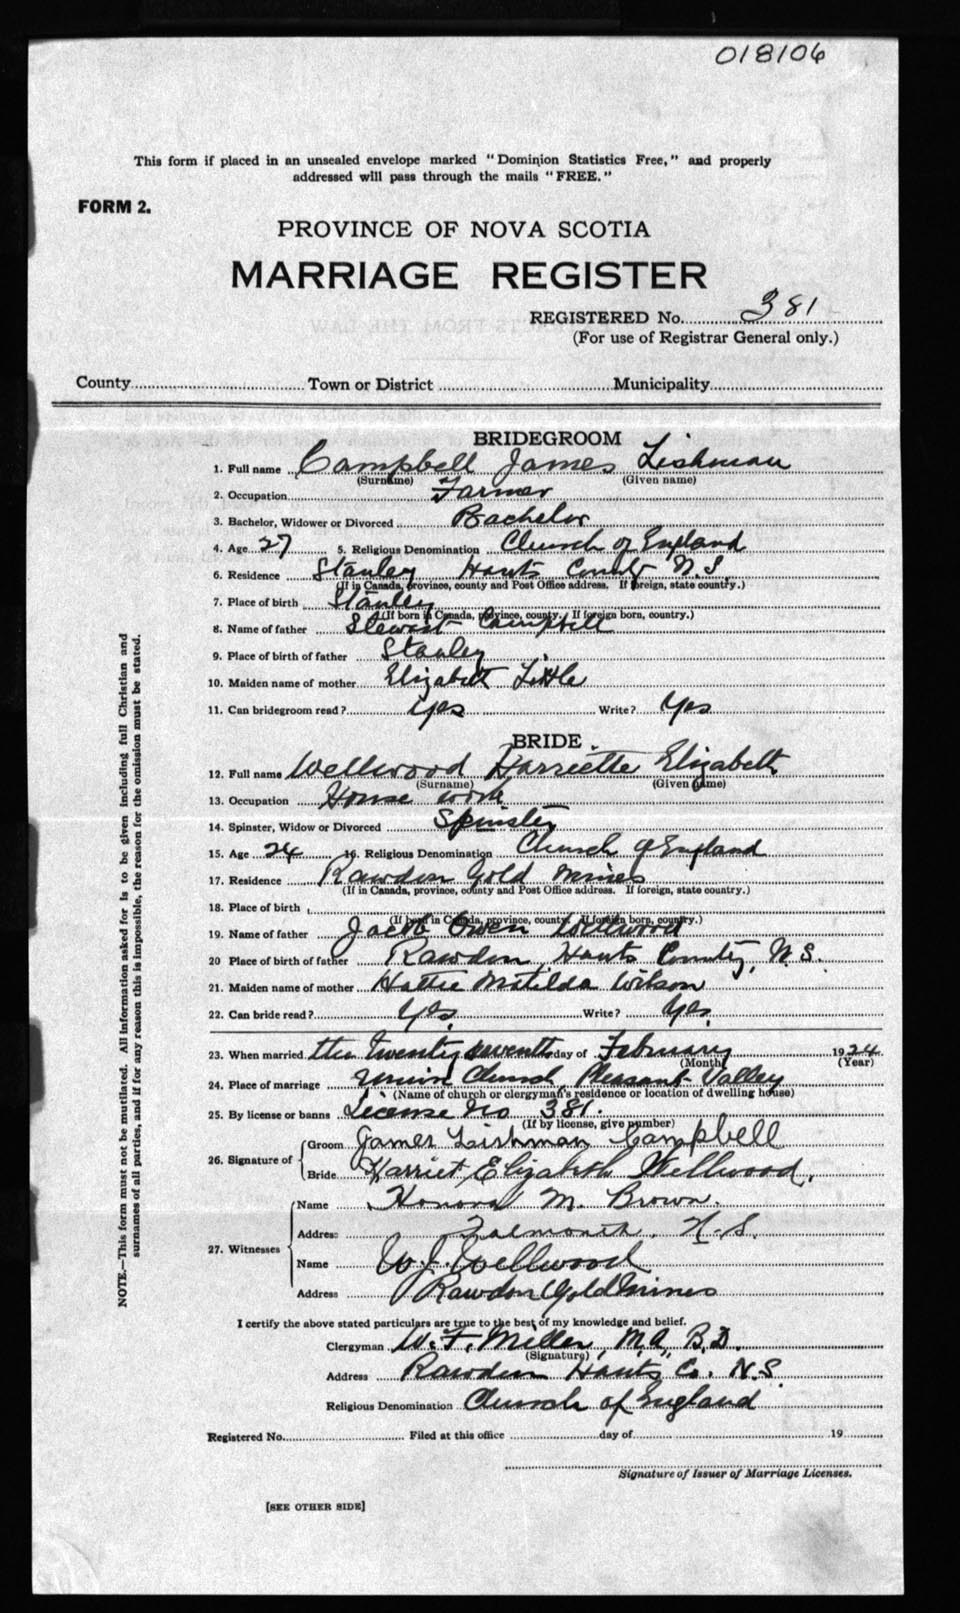 018106
This form if placed in an unsealed envelope marked "Dominion Statistics Free," and properly
addressed will pass through the mails "FREE."
FORM 2.
PROVINCE OF NOVA SCOTIA
MARRIAGE REGISTER
REGISTERED No. 381
(For use of Registrar General only.)
County Town or District Municipality
BRIDEGROOM
1. Full name Campbell James Lishman
(Surname) (Given name)
2. Occupation Farmer
3. Bachelor, Widower or Divorced Bachelor
4. Age 27 5. Religious Denomination Church of England
6. Residence Stanley Hants County N.S.
(If in Canada, province, county and Post Office address. If foreign, state country.)
7. Place of birth Stanley
(If born in Canada, province, county. If foreign born, country.)
8. Name of father Stewart Campbell
9. Place of birth of father Stanley
10. Maiden name of mother Elizabeth Little
11. Can bridegroom read? Yes Write? Yes
BRIDE.
12. Full name Wellwood Harriette Elizabeth
(Surname) (Given name)
13. Occupation House work
14. Spinster, Widow or Divorced Spinster
15. Age 24 16. Religious Denomination Church of England
17. Residence Rawdon Gold Mines
(If in Canada, province, county and Post Office address. If foreign, state country.)
18. Place of birth
(If born in Canada, province, county. If foreign born, country.)
19. Name of father Jacob Owen Wellwood
20 Place of birth of father Rawdon, Hants County, N.S.
21. Maiden name of mother Hattie Matilda Wilson
22. Can bride read? Yes. Write? Yes.
23. When married the twenty seventh day of February 1924
(Month) (Year)
24. Place of marriage Union Church, Pleasant Valley
(Name of church or clergyman's residence or location of dwelling house)
25. By license or banns License No 381.
(If by license, give number)
26. Signature of Groom James Lishman Campbell
Bride Harriet Elizabeth Wellwood.
27. Witnesses
Name Honora M. Brown.
Address Falmouth. N.S.
Name W.J. Wellwood
Address Rawdon Gold Mines
I certify the above stated particulars are true to the best of my knowledge and belief.
Clergyman W. F. Miller, M.A., B.D.
(Signature)
Address Rawdon Hants Co. N.S.
Religious Denomination Church of England
Registered No. Filed at this office day of 19
Signature of Issuer of Marriage Licenses.
[SEE OTHER SIDE]
NOTE.—This form must not be mutilated. All information asked for is to be given including full Christian and
surnames of all parties, and if for any reason this is impossible, the reason for the omission must be stated.